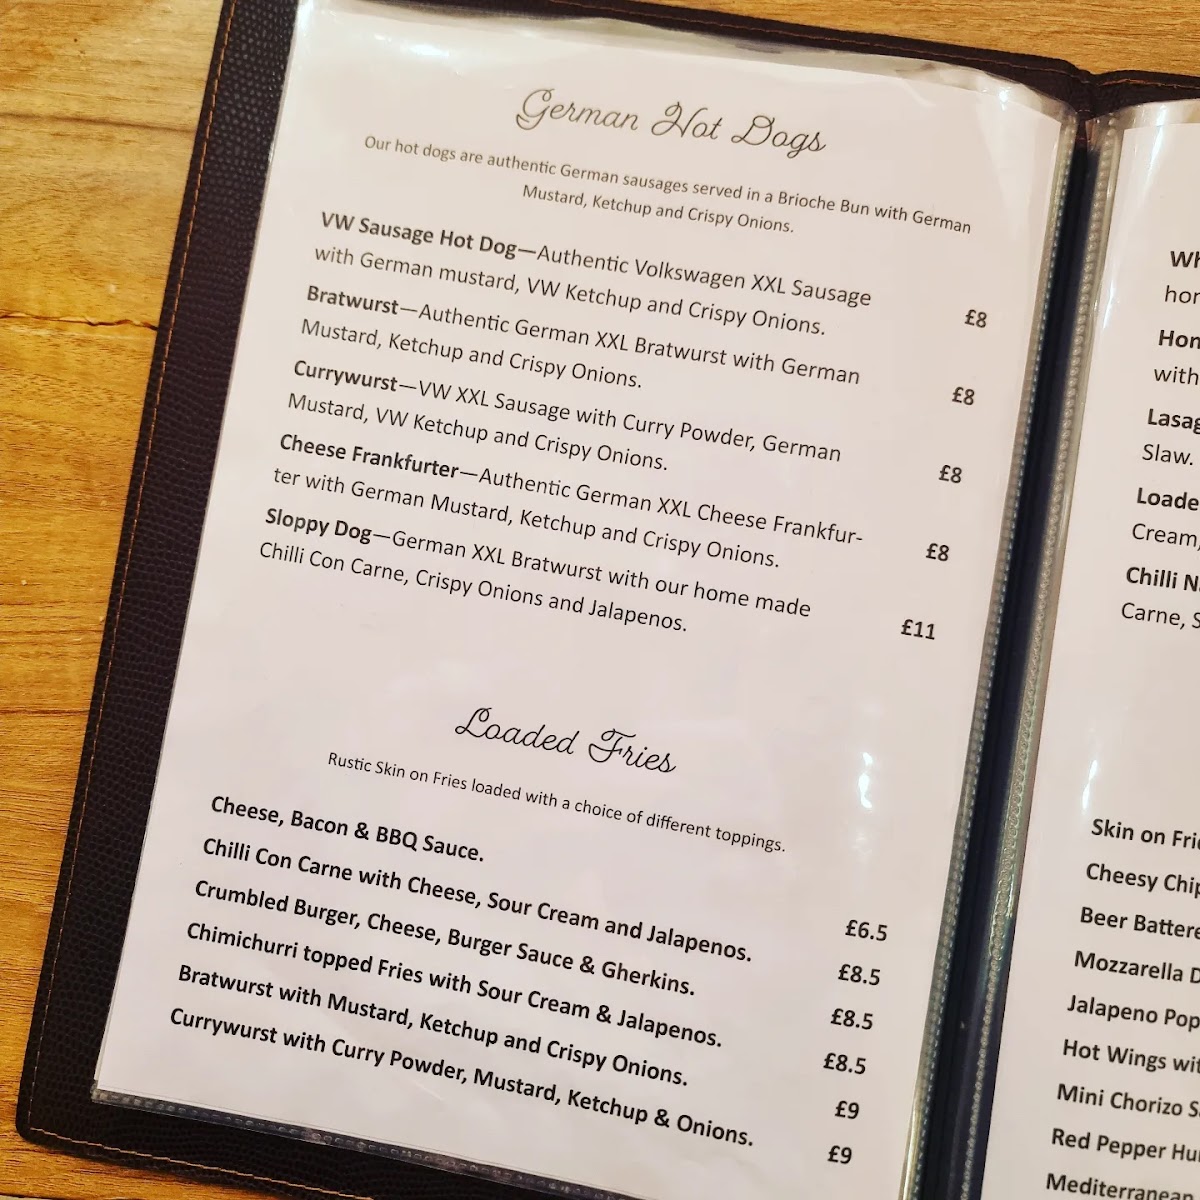 German Hot Dogs
Our hot dogs are authentic German sausages served in a Brioche Bun with German
Mustard, Ketchup and Crispy Onions.
VW Sausage Hot Dog—Authentic Volkswagen XXL Sausage
with German mustard, VW Ketchup and Crispy Onions. £8
Bratwurst—Authentic German XXL Bratwurst with German
Mustard, Ketchup and Crispy Onions. £8
Currywurst—VW XXL Sausage with Curry Powder, German
Mustard, VW Ketchup and Crispy Onions. £8
Cheese Frankfurter—Authentic German XXL Cheese Frankfur-
ter with German Mustard, Ketchup and Crispy Onions. £8
Sloppy Dog—German XXL Bratwurst with our home made
Chilli Con Carne, Crispy Onions and Jalapenos. £11
Loaded Fries
Rustic Skin on Fries loaded with a choice of different toppings.
Cheese, Bacon & BBQ Sauce. £6.5
Chilli Con Carne with Cheese, Sour Cream and Jalapenos. £8.5
Crumbled Burger, Cheese, Burger Sauce & Gherkins. £8.5
Chimichurri topped Fries with Sour Cream & Jalapenos. £8.5
Bratwurst with Mustard, Ketchup and Crispy Onions. £9
Currywurst with Curry Powder, Mustard, Ketchup & Onions. £9
with
Slaw.
Cream,
Chilli
Carne,
Skin on
Cheesy
Beer
Mozzarella
Jalapeno
Hot Wings
Mini Chorizo
Red Pepper
Mediterranean